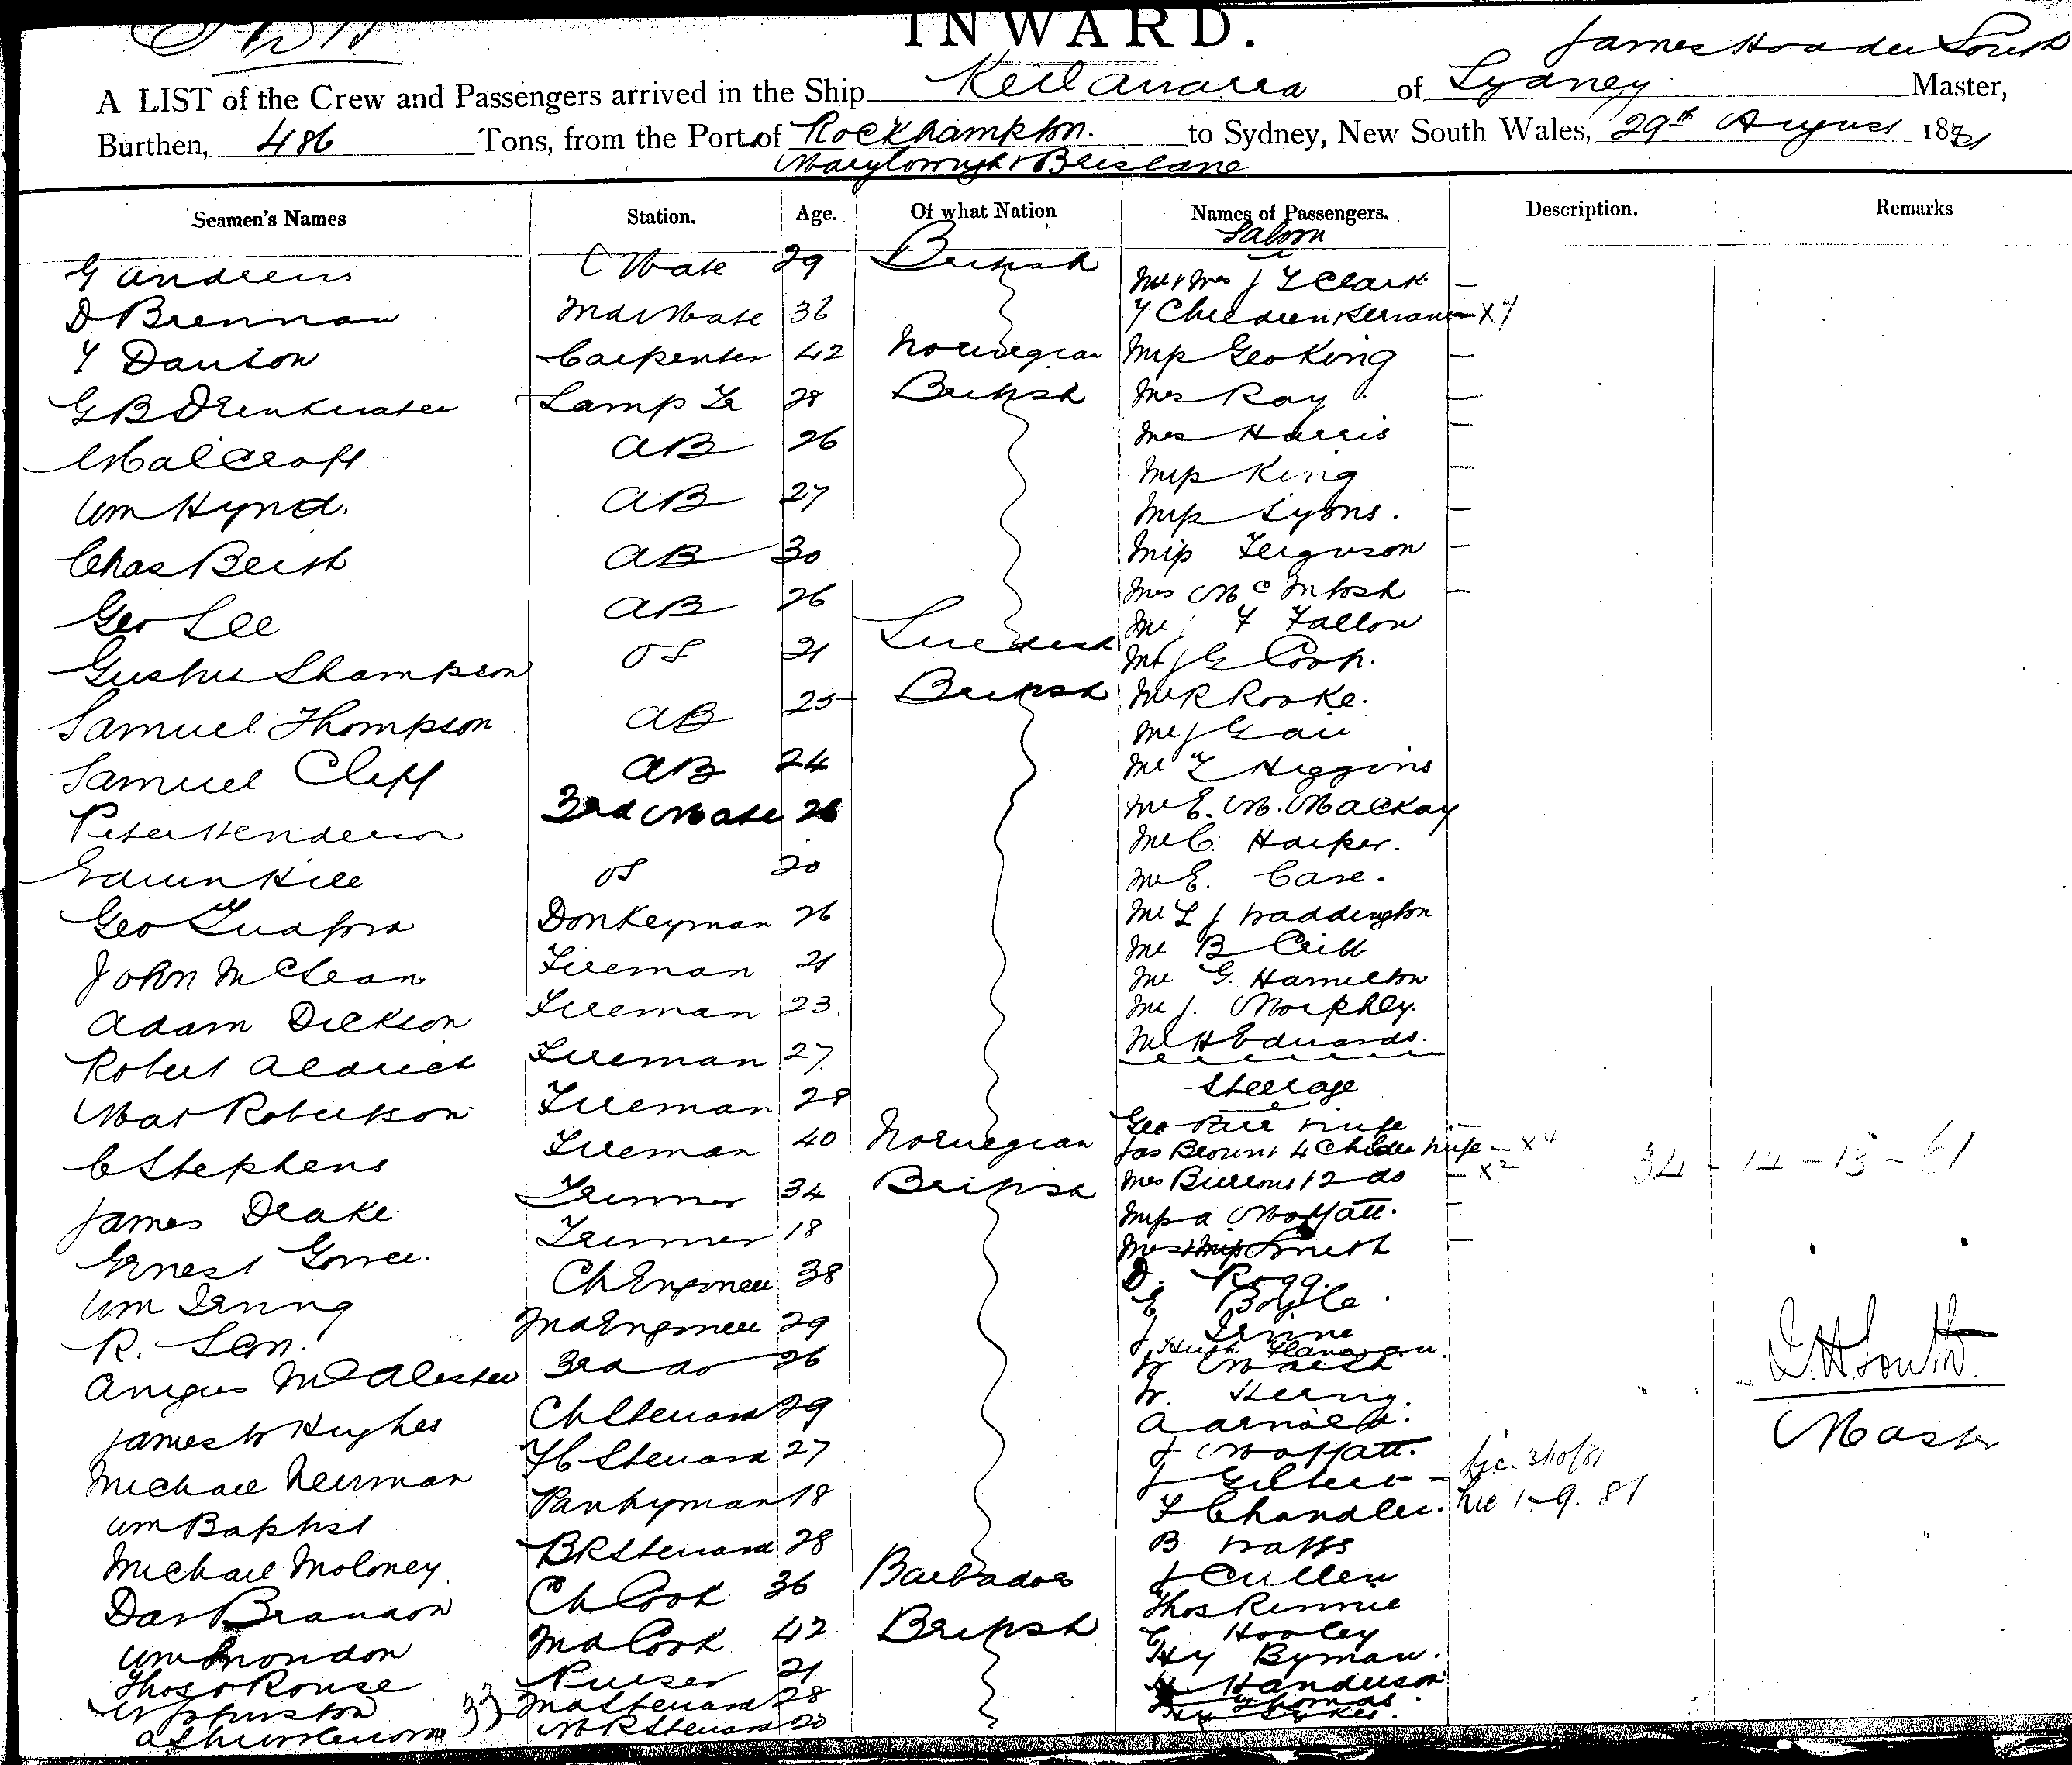 INWARD.
James Hoader South
A LIST of the Crew and Passengers arrived in the Ship Keilawarra of Sydney Master,
Burthen, 486 Tons, from the Port of Rockhampton. to Sydney, New South Wales, 29th August 1881
Maryborough & Brisbane
Seamen's Names Station. Age. Of what Nation Names of Passengers. Description. Remarks
Saloon
G Andrews C Mate 29 British Mr & Mrs J Clark —
D Brennan 2nd Mate 36 7 Children & Servant — X7
Carpenter 42 Norwegian Miss Geo King —
G B Drinkwater Lamp Tr 28 British Mrs Ray —
AB 26 Mrs Harris —
Miss King —
Wm Hynd. AB 27 Miss Lyons. —
Chas Beish AB 30 Miss Ferguson —
Geo Lee AB 26 Mrs McIntosh —
Mr F Fallon
OS 21 Swedish Mr J G Coop.
Samuel Thompson AB 25 British Mr R Rooke.
Mr J Gair
Samuel Cliff AB 24 Mr Higgins
Peter Henderson 3rd Mate 26 Mr E. M. Mackay
Mr C. Harper.
Edwin Hill OS 20 Mr E. Case.
Geo Donkeyman 26 Mr J Waddington
John McLean Fireman 21 Mr B Cribb
Mr G. Hamilton
Adam Dickson Fireman 23. Mr J. Morphey.
Robert Aldrich Fireman 27. Mr H Edwards.
Steerage
Mat Robertson Fireman 28 Geo Parr wife —
C Stephens Fireman 40 Norwegian Jas Brown & 4 Children wife — X4
34 - 14 - 13 - 61
James Drake Trimmer 34 British Mrs Burrows & 2 do — X2
Miss A Moffatt. —
Ernest Trimmer 18 Smith —
Wm Irving Ch Engineer 38 D. Rogg.
E Boyle.
R. 2nd Engineer 29 J
Hugh Flanagan.
Angus McAlester 3rd do 26 W Walsh
W.
James W Hughes Ch Steward 29 A Arnold.
Michael Newman F C Steward 27 J Moffatt.
J Gilbert — 3/10/81
Wm Baptist Pantryman 18 F Chandler. 1.9.81
Michael Moloney BR Steward 28 B Watts
J Cullen
Dav Brandon Ch Cook 36 Barbados Thos Rennie
Wm 2nd Cook 42 British Hooley
Hy Byman.
Thos Rouse Purser 21 Handerson
W Johnston 33 2nd Steward 28 Thomas.
20 Hy Sykes.
J.H. South
Master